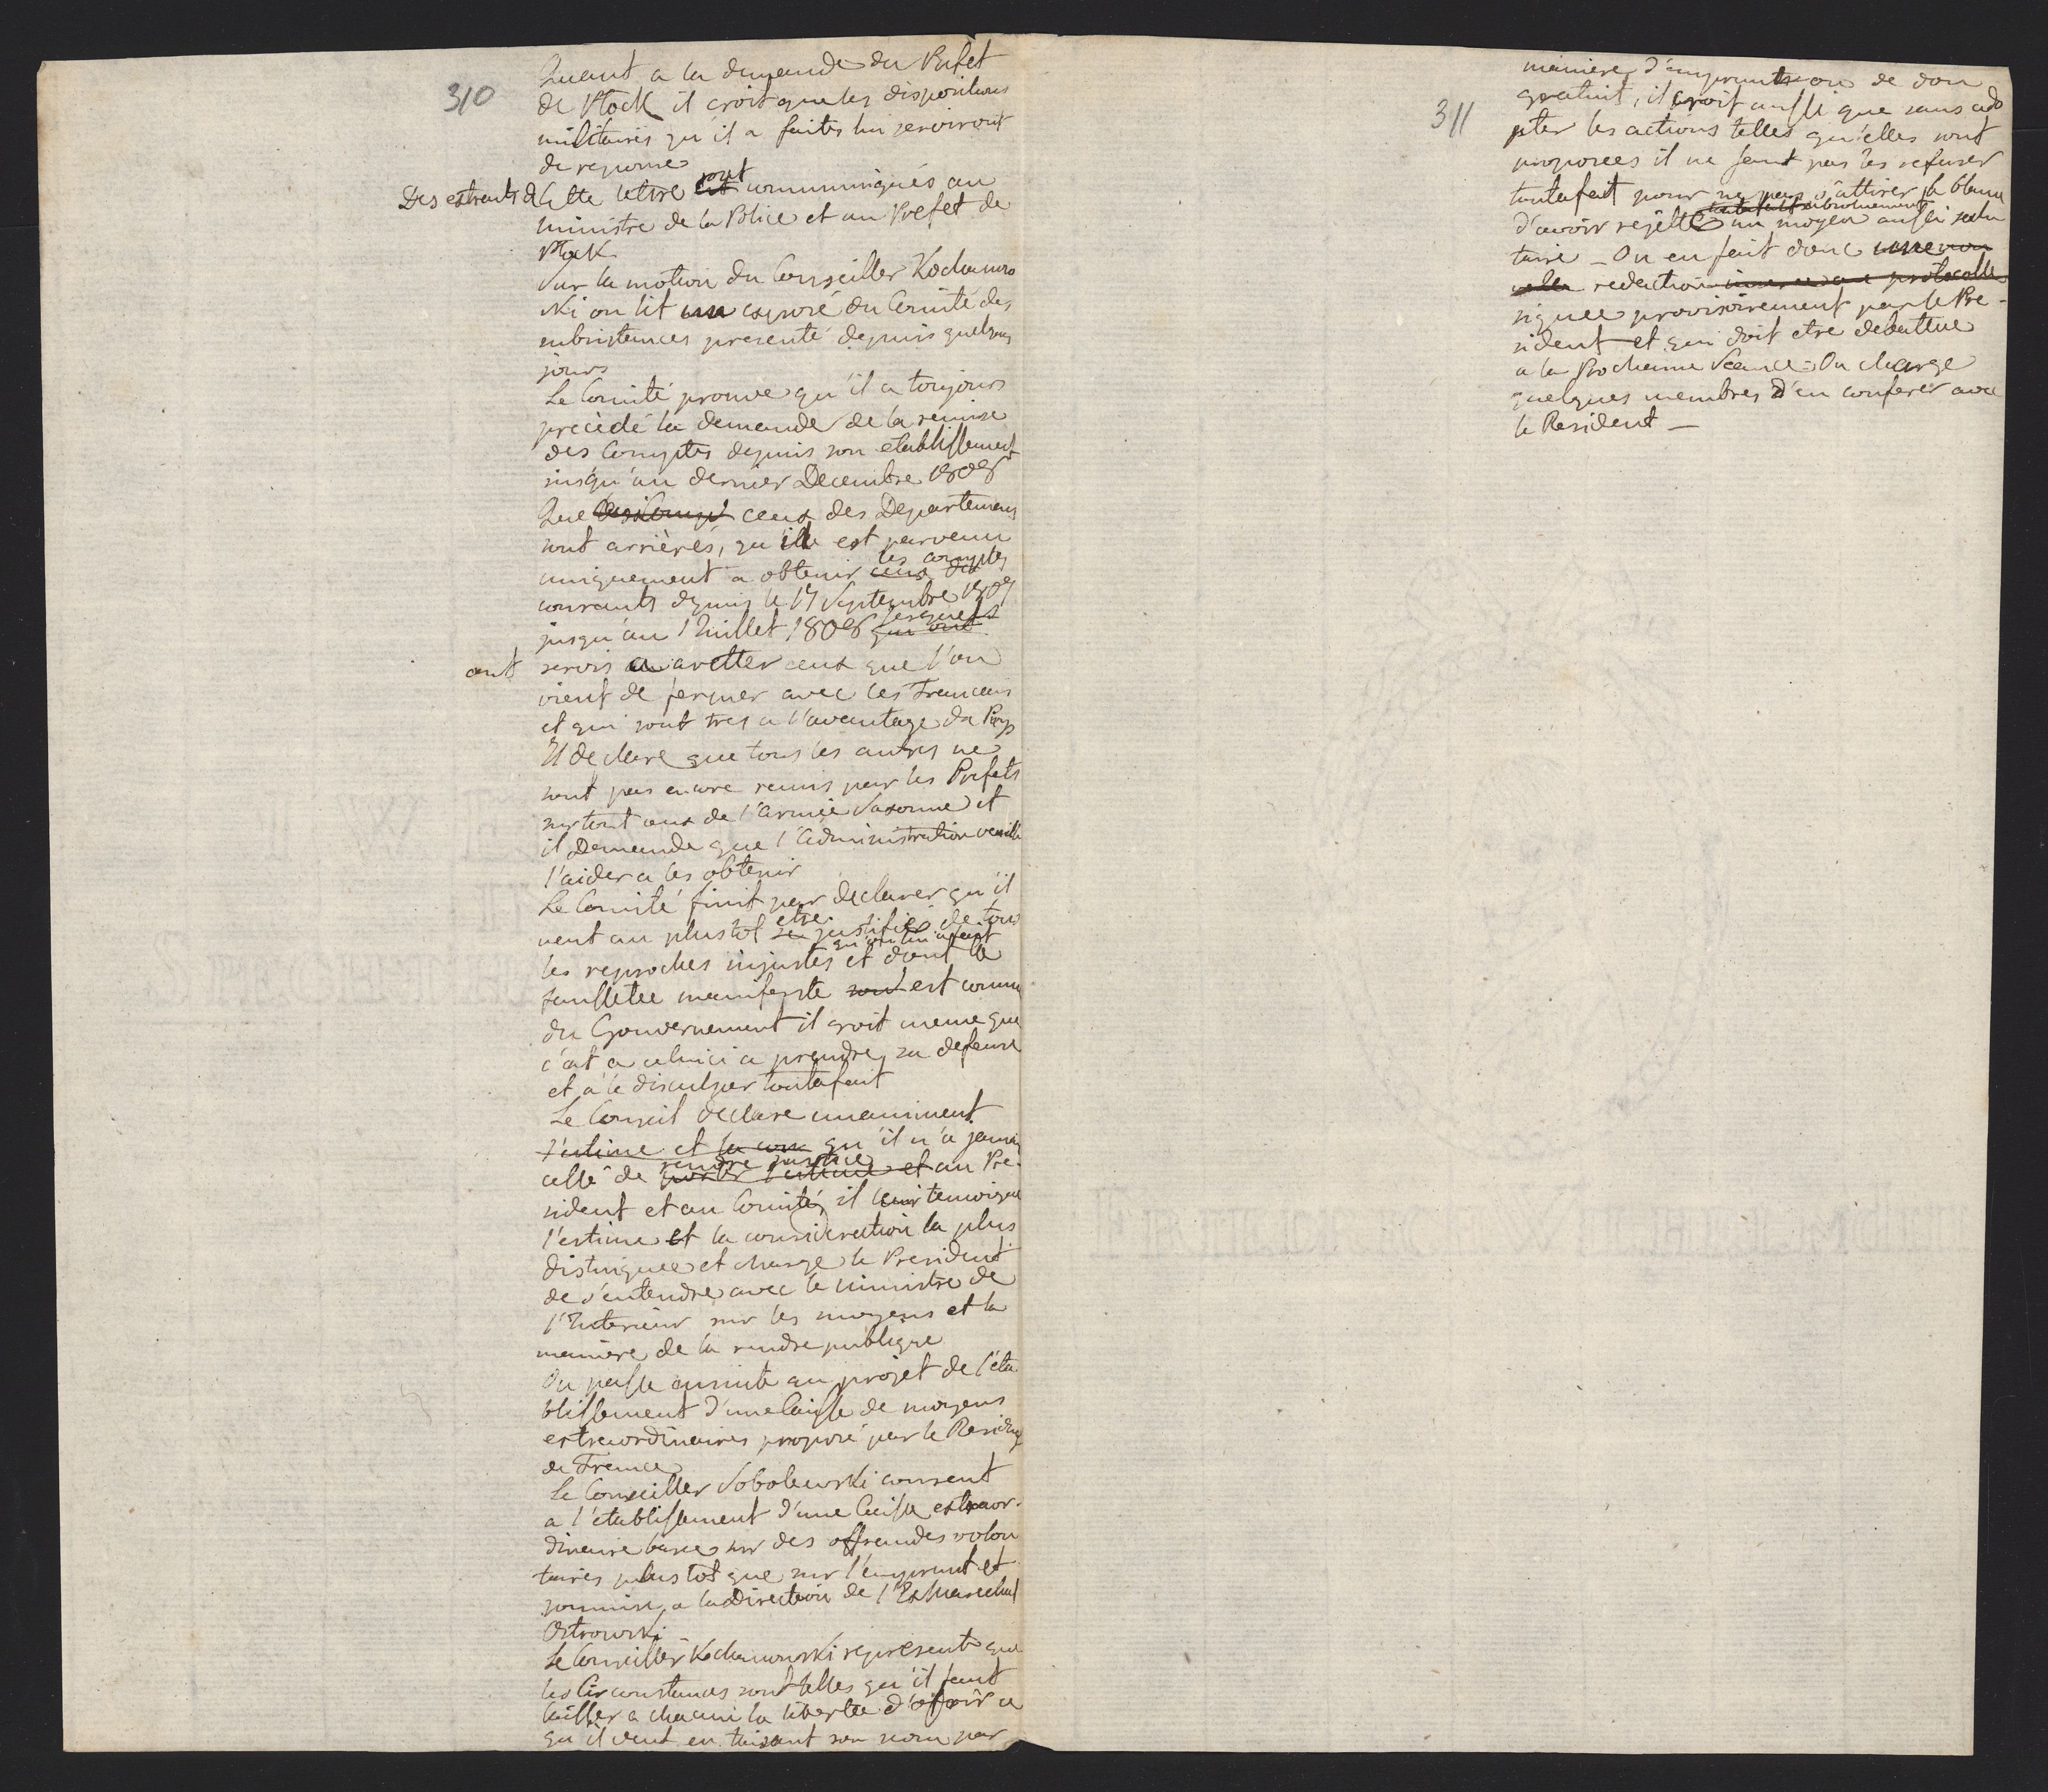 310
Quant a la demande du Prefet
de Plock il croit que les dispositions
militaires qu'il a faites lui serviront
de reponse
Des extraits de cette lettre sont communiqués au
ministre de la Police et au Prefet de
Plock
Sur la motion du Conseiller Kochanow
ski on lit un exposé du Comité des
subsistances presenté depuis quelques
jours
Le Comité prouve qu'il a toujours
precédé la demande de la remise
des Comptes depuis son etablissement
jusqu'au dernier Decembre 1808
Que ceux des Departemens
sont arriérés, qu'il est parvenu
uniquement a obtenir ceux des les comptes
courants depuis le 17 Septembre 1807
jusqu'au 1 Juillet 1808 qui ont lesquels
ont servis a aretter ceux que l'on
vient de fermer avec les Francais
et qui sont tres a l'avantage du Pays
Il declare que tous les autres ne
sont pas encore remis par les Prefets
surtout ceux de l'armée Saxonne et
il Demande que l'administration veuille
l'aider a les obtenir
Le Comité finit par declarer qu'il
veut au plustot se etre justifié de tous
les reproches injustes qu'on lui a fait et dont la
faussetee manifeste sont est connu
du Gouvernement il croit meme que
c'est a celuici a prendre sa defense
et a le disculper toutafait
Le Conseil declare unaniment
l'estime et la con qu'il n'a jamais
cessé de porter l'estime et rendre justice au Pre-
sident et au Comité, il leur temoigne
l'estime et la consideration la plus
distinguee et charge le President
de s'entendre avec le ministre de
l'Interieur sur les moyens et la
maniere de la rendre publique
On passe ensuite au projet de l'éta
blissement d'une Caisse de moyens
extraordinaires proposé par le Resident
de France
Le Conseiller Sobolewski consent
a l'etablissement d'une Caisse extraor-
dinaire basee sur des offrandes volon
taires plustot que sur l'emprunt et
soumise a la Direction de l'Ex Marechal
Ostrowski
Le Conseiller Kochanowski represente que
les Circonstances sont telles qu'il faut
laisser a chacun la libertee d'offrir ce
qu'il veut en taisant son nom par
311
maniere d'emprunts ou de don
gratuit, il croit aussi que sans ado
pter les actions telles qu'elles sont
proposees il ne faut pas les refuser
toutafait pour ne pas s'attirer le blame
d'avoir rejetté un moyen aussi salu
taire - On en fait donc une nou
velle redaction protocolle
signee provisoirement par le Pre-
sident et qui doit etre debattue
a la Prochaine Seance - On charge
quelques membres d'en conferer avec
le Resident -